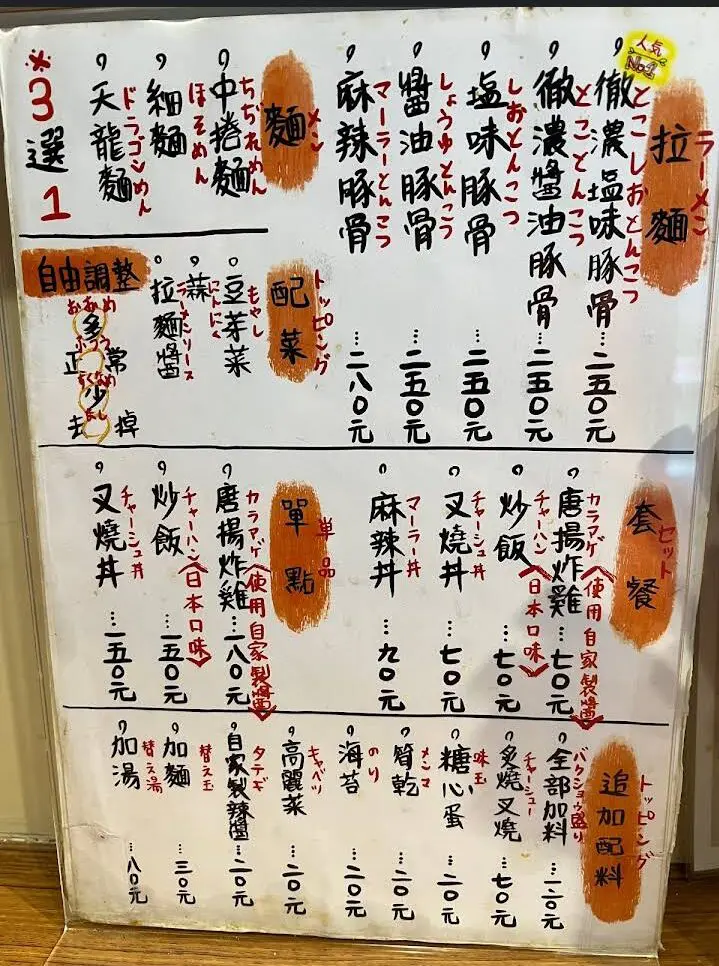 拉麵
ラーメン
人気
No.1
徹濃塩味豚骨…二五0元
とこしおとんこつ
徹濃醬油豚骨…二五0元
とことんこつ
塩味豚骨…二五0元
しおとんこつ
醬油豚骨…二五0元
しょうゆとんこつ
麻辣豚骨…二八0元
マーラーとんこつ
麵
メン
中捲麵
ちぢれめん
細麵
ほそめん
天龍麵
ドラゴンめん
※3選1
配菜
トッピング
豆芽菜
もやし
蒜
にんにく
拉麵醬
ラーメンソース
自由調整
おおめ
多
ふつう
正常
すくなめ
少
なし
去掉
套餐
セット
唐揚炸雞…七0元
カラアゲ《使用自家製醬》
炒飯…七0元
チャーハン《日本口味》
叉燒丼…七0元
チャーシュ丼
麻辣丼…九0元
マーラー丼
單點
単品
唐揚炸雞…一八0元
カラアゲ《使用自家製醬》
炒飯…一五0元
チャーハン《日本口味》
叉燒丼…一五0元
チャーシュ丼
追加配料
トッピング
全部加料…一二0元
バクショウ盛り
炙燒叉燒…七0元
チャーシュー
糖心蛋…二0元
味玉
筍乾…二0元
メンマ
海苔…二0元
のり
高麗菜…二0元
キャベツ
自家製辣醬…二0元
タデギ
加麵…三0元
替え玉
加湯…八0元
替え湯